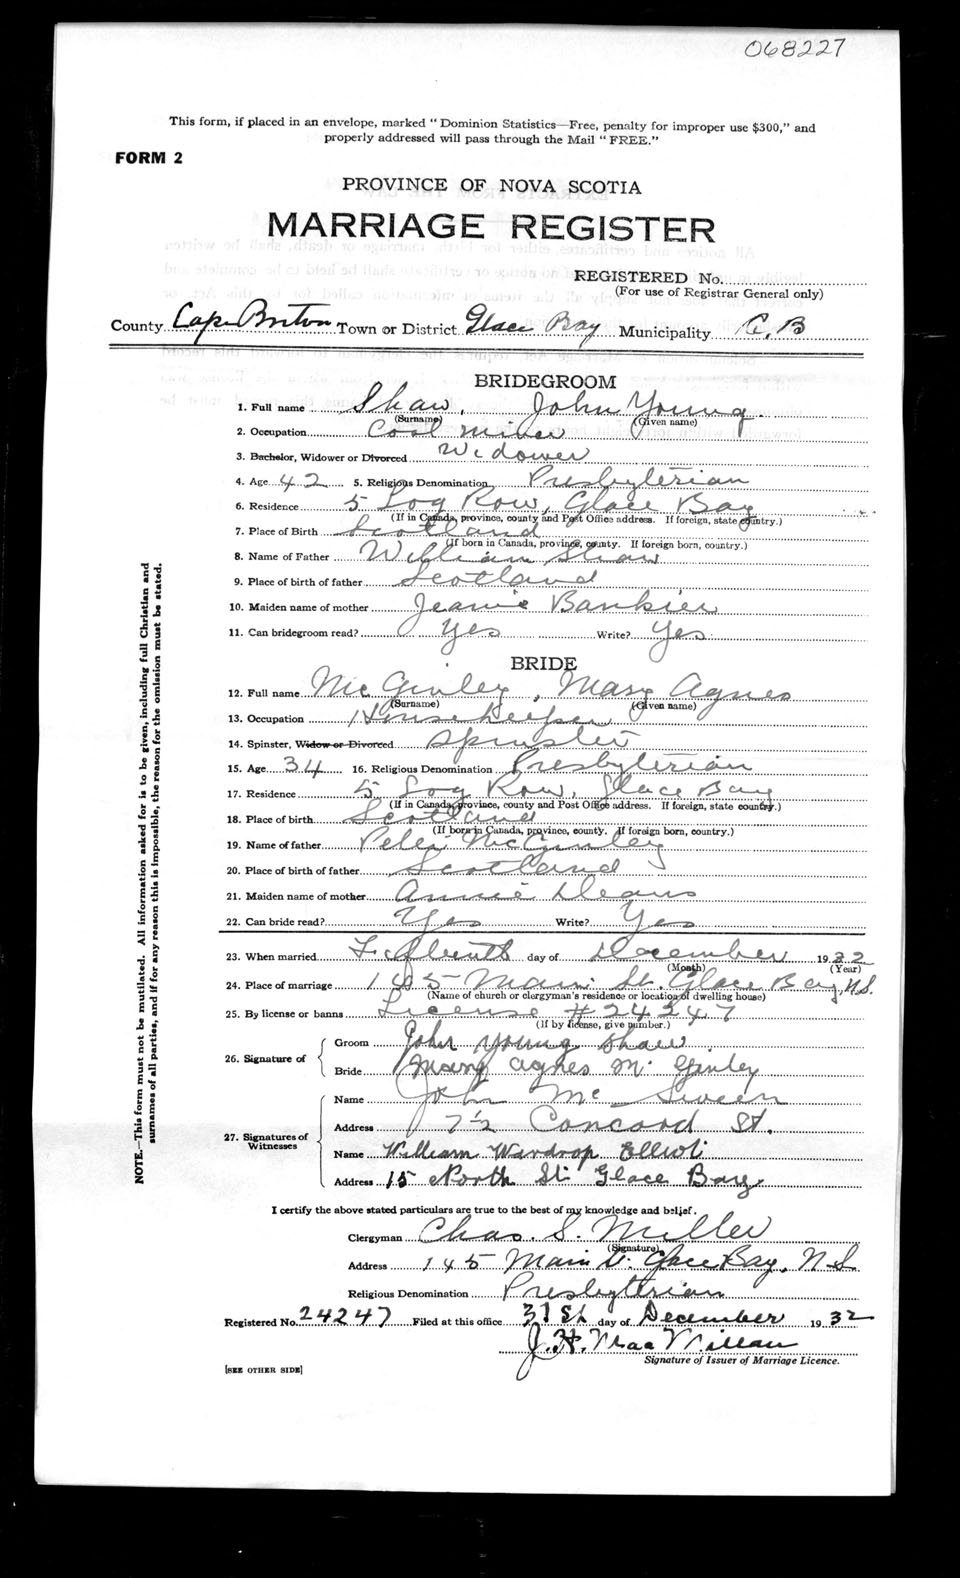 068227
This form, if placed in an envelope, marked "Dominion Statistics—Free, penalty for improper use $300," and
properly addressed will pass through the Mail "FREE."
FORM 2
PROVINCE OF NOVA SCOTIA
MARRIAGE REGISTER
REGISTERED No.
(For use of Registrar General only)
County Cape Breton Town or District Glace Bay Municipality C.B
BRIDEGROOM
1. Full name Shaw, John Young
(Surname) (Given name)
2. Occupation Coal miner
3. Bachelor, Widower or Divorced Widower
4. Age 42 5. Religious Denomination Presbyterian
6. Residence 5 Log Row, Glace Bay
(If in Canada, province, county and Post Office address. If foreign, state country.)
7. Place of Birth Scotland
(If born in Canada, province, county. If foreign born, country.)
8. Name of Father William Shaw
9. Place of birth of father Scotland
10. Maiden name of mother Jeanie Bankier
11. Can bridegroom read? Yes Write? Yes
BRIDE
12. Full name McGinley, Mary Agnes
(Surname) (Given name)
13. Occupation Housekeeper
14. Spinster, Widow or Divorced Spinster
15. Age 34 16. Religious Denomination Presbyterian
17. Residence 5 Log Row, Glace Bay
(If in Canada, province, county and Post Office address. If foreign, state country.)
18. Place of birth Scotland
(If born in Canada, province, county. If foreign born, country.)
19. Name of father Peter McGinley
20. Place of birth of father Scotland
21. Maiden name of mother Annie Deans
22. Can bride read? Yes Write? Yes
23. When married day of December 1932
(Month) (Year)
24. Place of marriage 145 Main St. Glace Bay, N.S.
(Name of church or clergyman's residence or location of dwelling house)
25. By license or banns License #24247
(If by license, give number.)
26. Signature of
Groom John Young Shaw
Bride Mary Agnes McGinley
27. Signatures of Witnesses
Name John McSween
Address 7½ Concord St.
Name William Wardrop Elliot
Address 15 North St. Glace Bay
I certify the above stated particulars are true to the best of my knowledge and belief.
Clergyman Chas. S. Miller
(Signature)
Address 145 Main St. Glace Bay, N.S.
Religious Denomination Presbyterian
Registered No. 24247 Filed at this office 31st day of December 1932
J. H. MacMillan
Signature of Issuer of Marriage Licence.
[SEE OTHER SIDE]
NOTE.—This form must not be mutilated. All information asked for is to be given, including full Christian and
surnames of all parties, and if for any reason this is impossible, the reason for the omission must be stated.